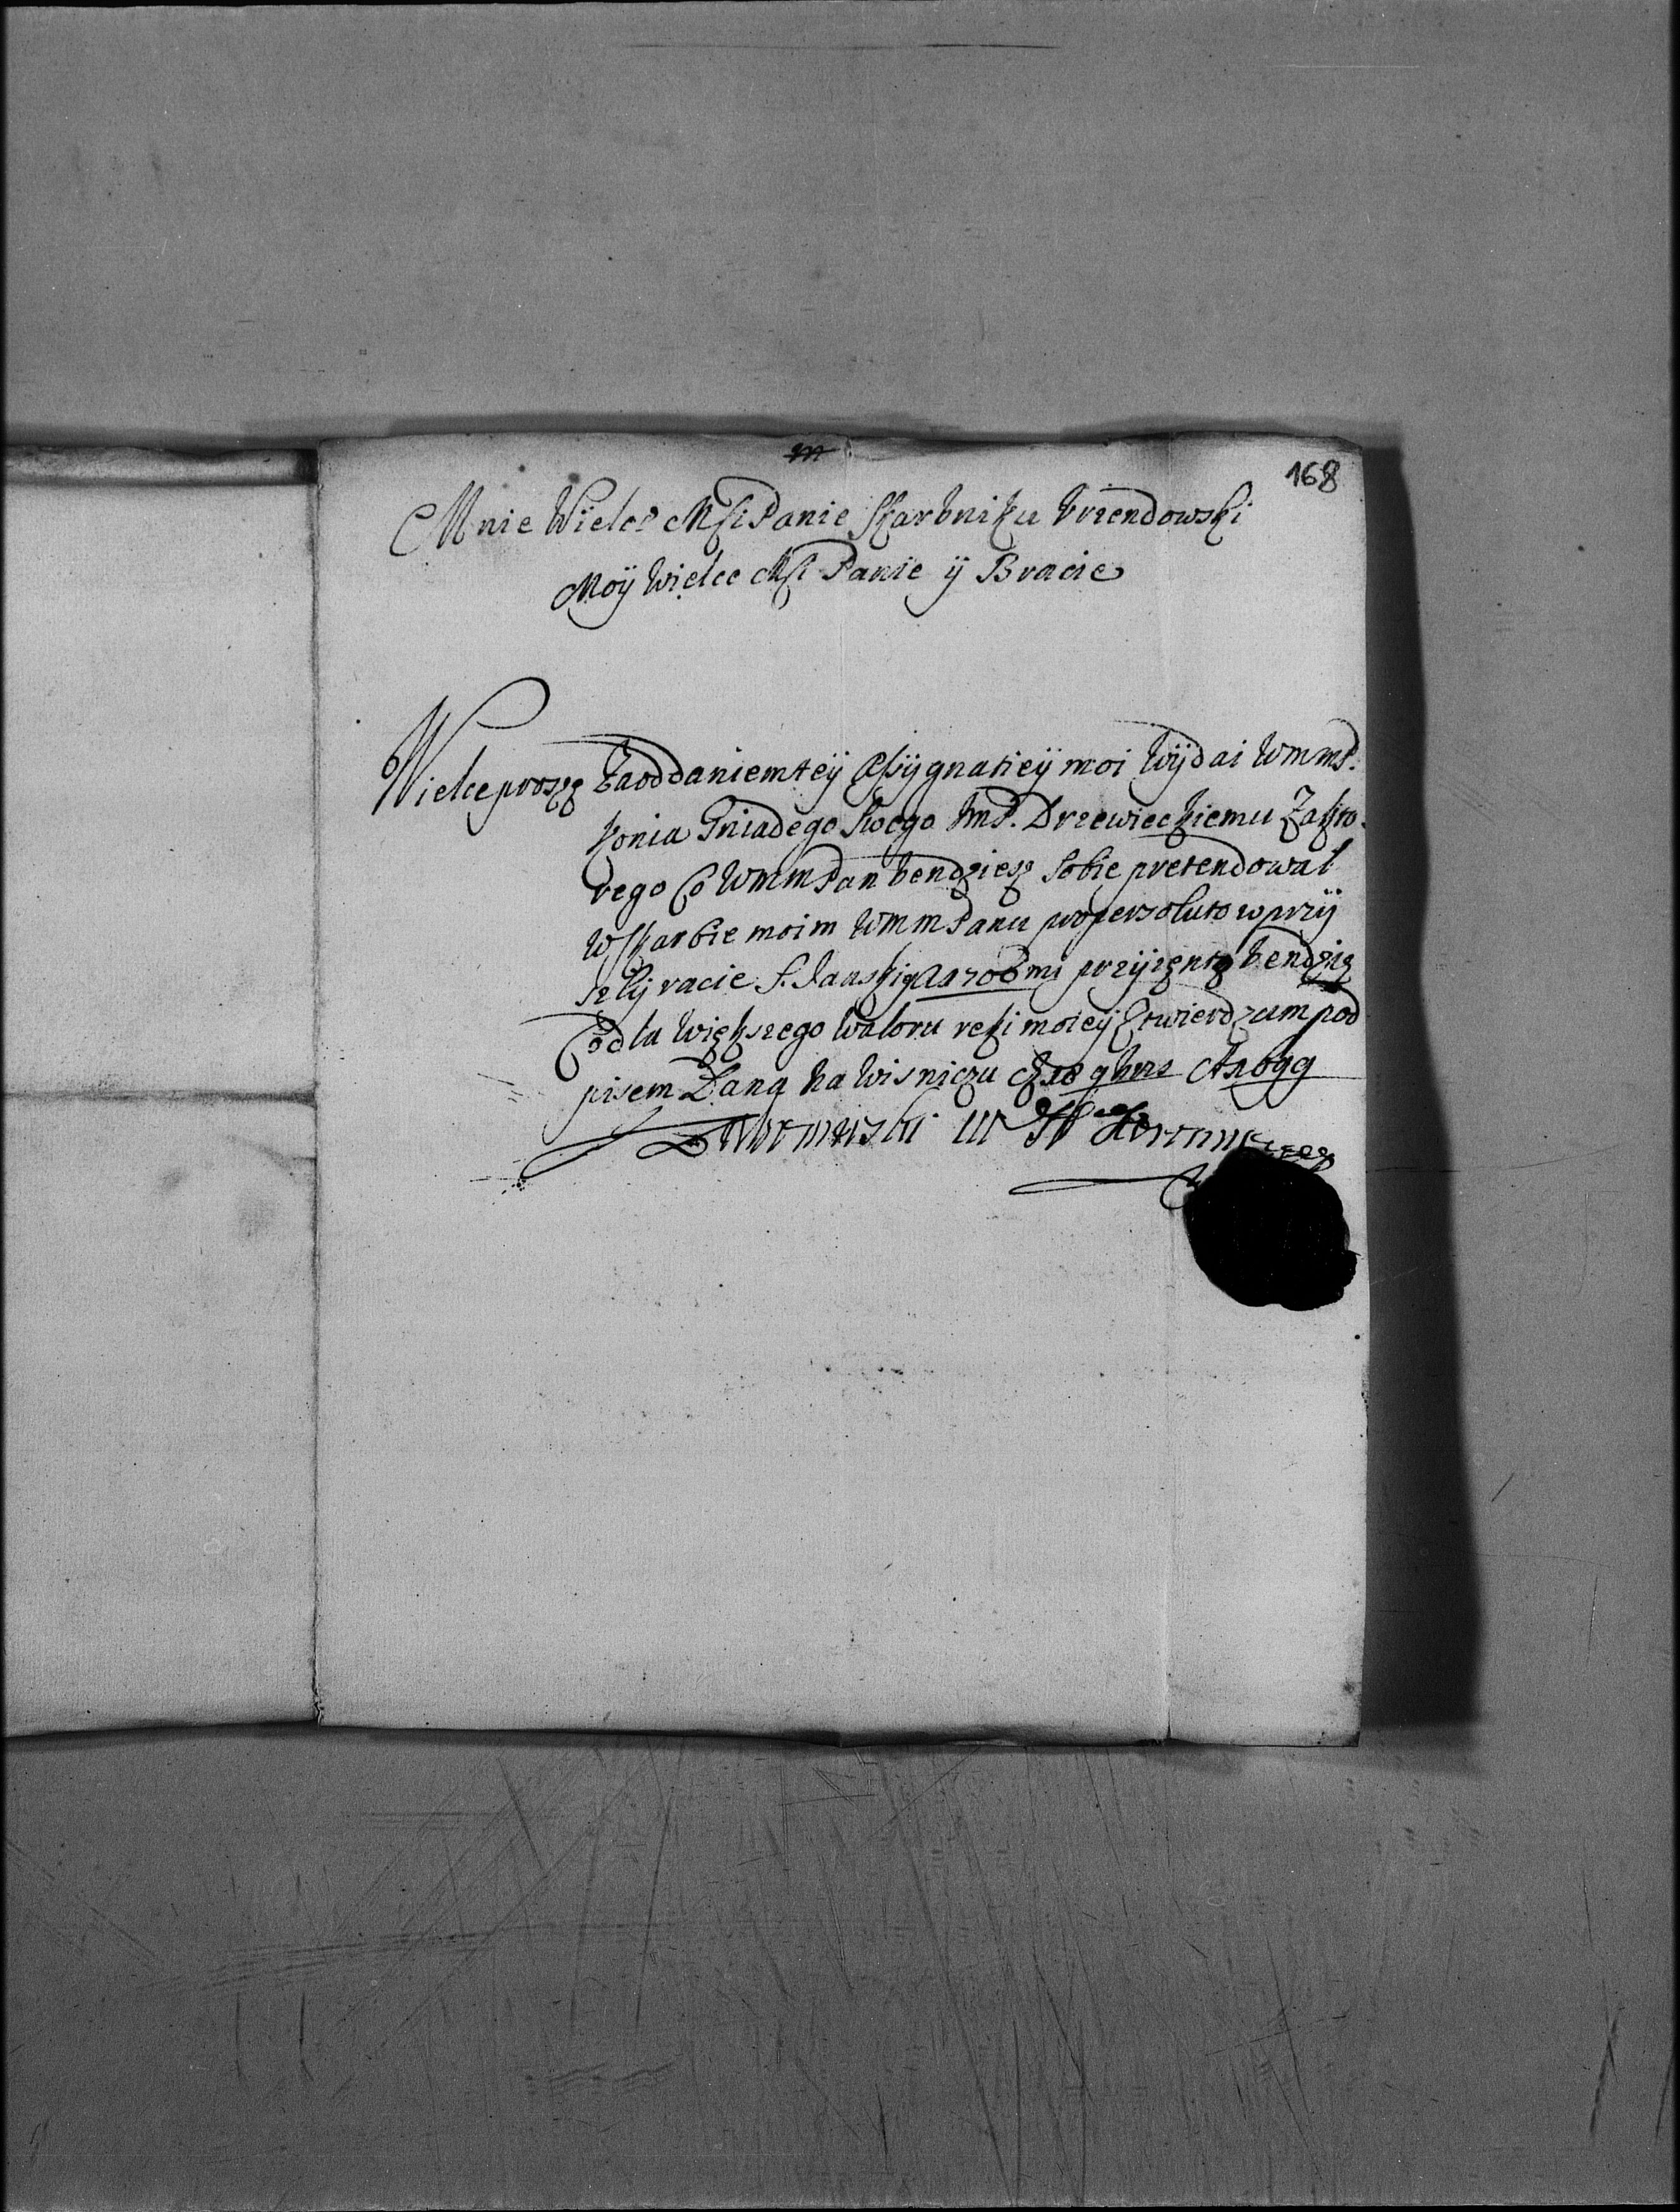 m
168
Mnie Wielce Mści Panie Skarbniku Urzendowski
Moÿ Wielce Mści Panie ÿ Bracie
Wielce proszę Za oddaniem teÿ Assÿgnatieÿ moi Wÿdai WmmP.
konia Gniadego swego ImP. Drzewieckiemu Za kto-
rego Co WmmPan bendziesz sobie pretendował
W skarbie moim WmmPanu pro persoluto w przÿ
szlÿ racie S. Janskiÿ Aᵒ 1700 mi przÿięntę bendzię
Co dla większego waloru ręki moieÿ stwierdzam pod
pisem Dana na Wisniczu 9bris Aᵒ 1699